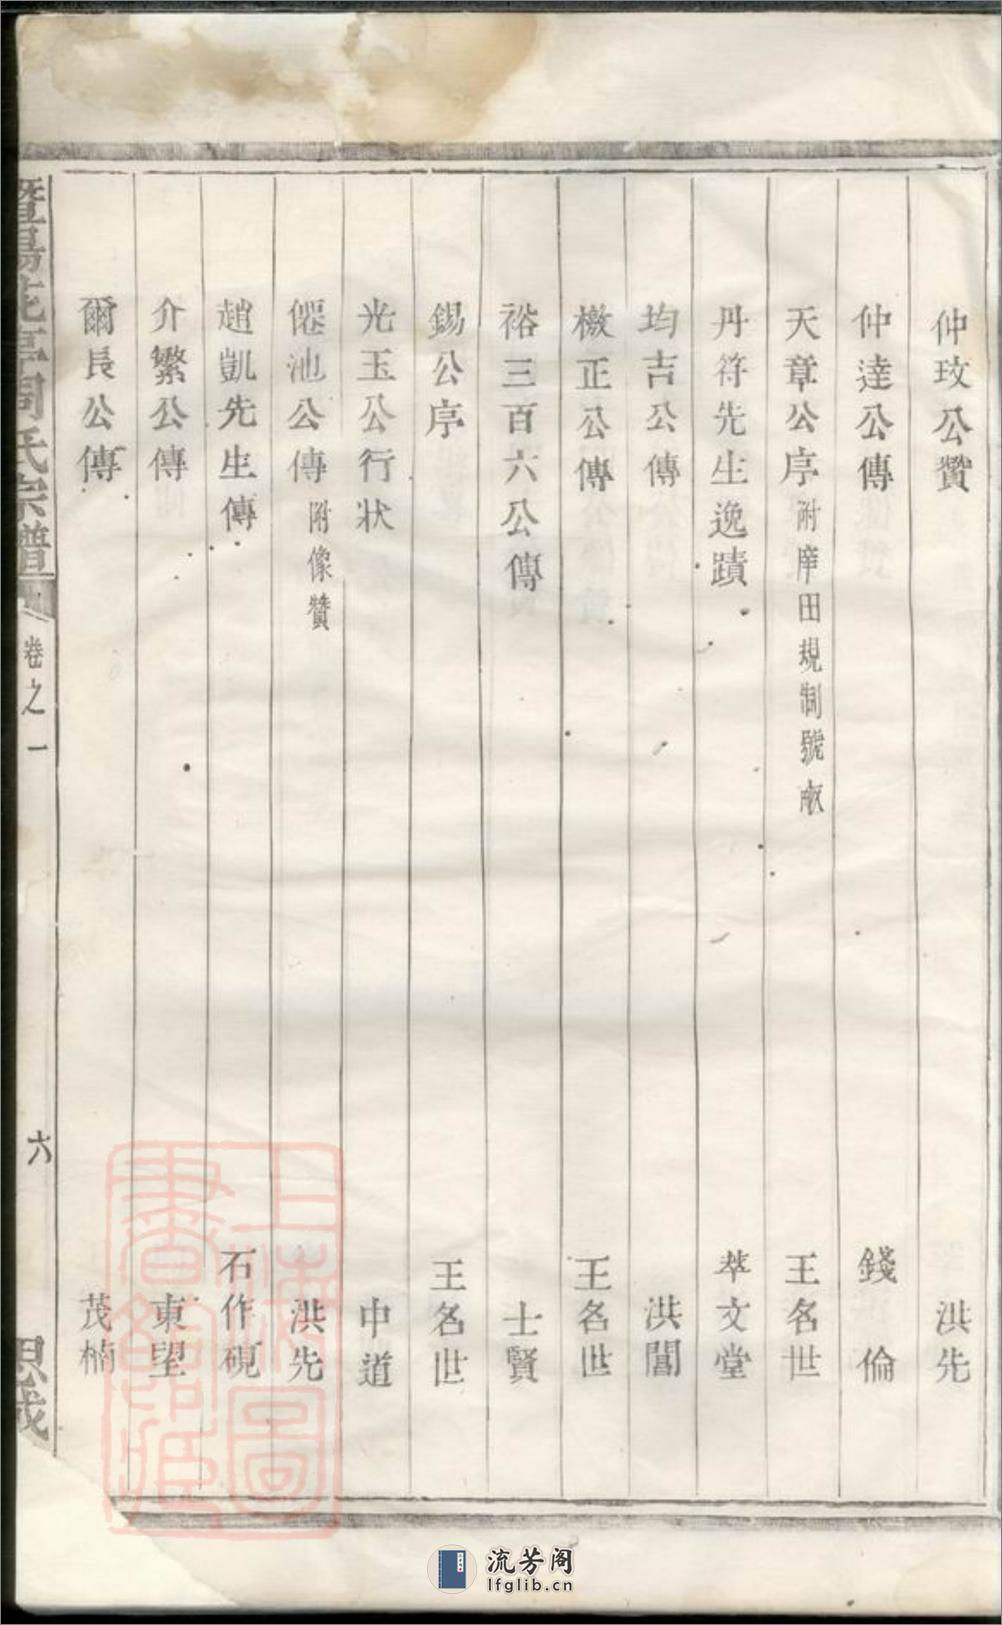 仲玟公贊 洪先
仲達公傳 錢倫
天章公序附庠田規制號畝 王名世
丹符先生逸蹟 萃文堂
均吉公傳 洪闓
檄正公傳 王名世
裕三百六公傳 士賢
錫公序 王名世
光玉公行状 中道
僊池公傳附像贊 洪先
趙凱先生傳 石作硯
介繁公傳 東望
爾長公傳 茂楠
暨陽 周氏宗譜 卷之一 六 思成
上海圖書館藏
流芳阁
lfglib.cn